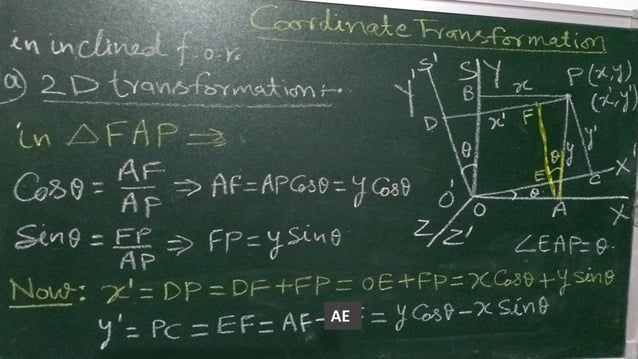 Coordinate Transformation
in inclined f.o.r.
a) 2D transformation:-
in △FAP ⇒
Cosθ = AF/AP ⇒ AF = AP Cosθ = y Cosθ
Sinθ = FP/AP ⇒ FP = y Sinθ
Now: x' = DP = DF + FP = OE + FP = x Cosθ + y Sinθ
y' = PC = EF = AF - AE = y Cosθ - x Sinθ
S' S Y P(x,y)
Y' B x (x',y')
D x' F
θ θ y y'
E C X'
O' θ
O A X
Z Z' ∠EAP = θ